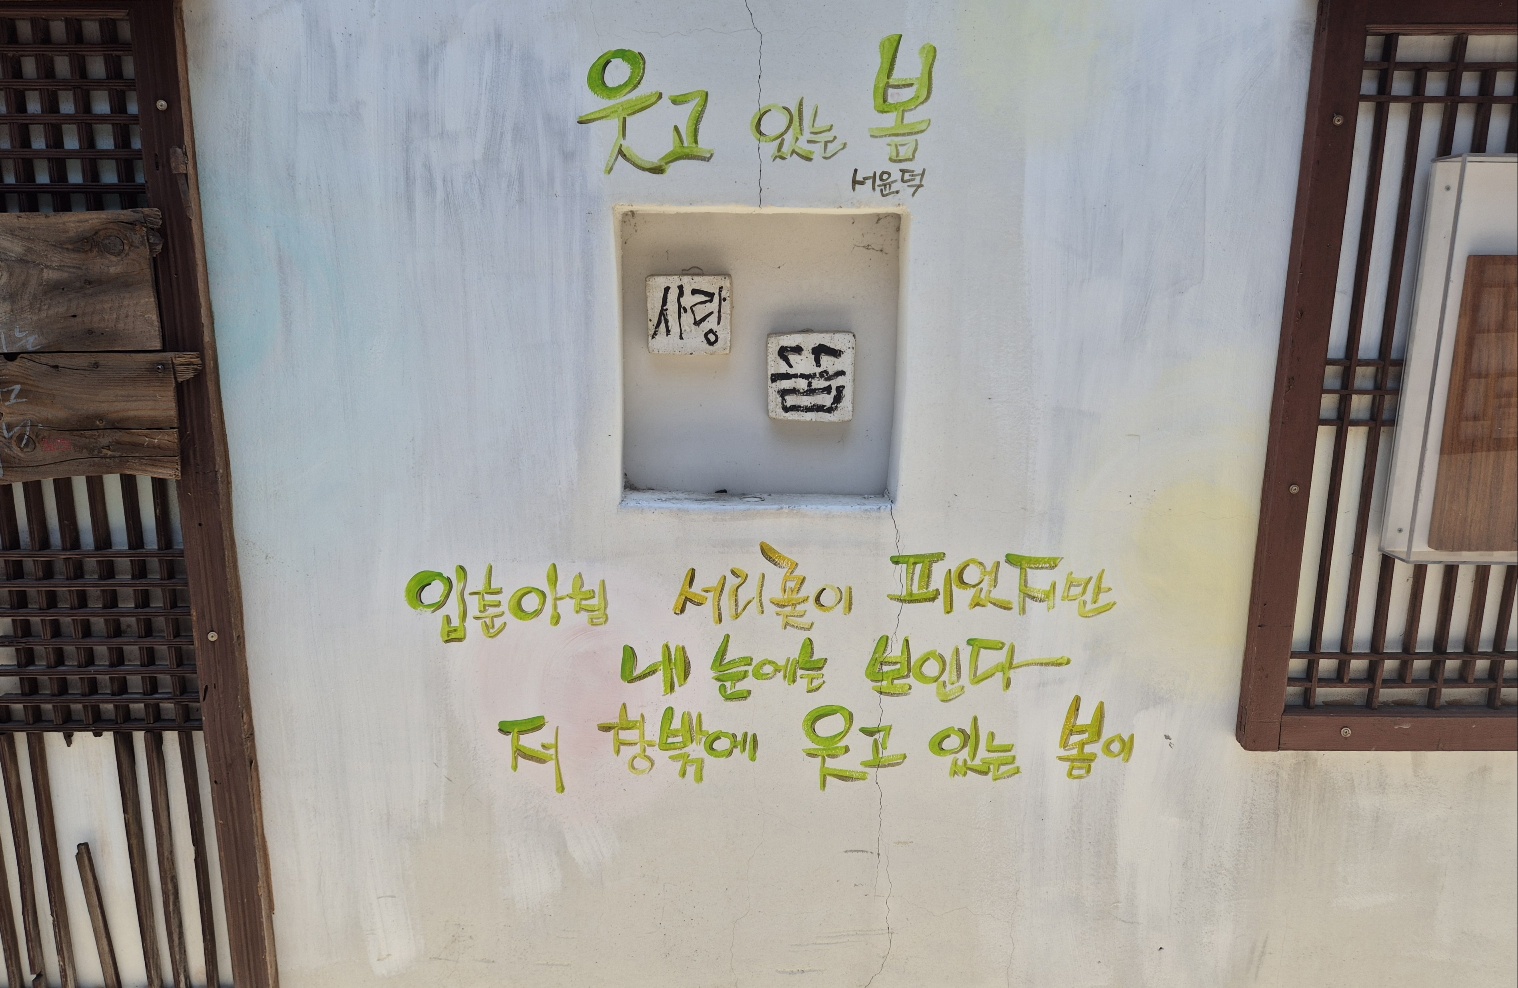 웃고 있는 봄
서윤덕
사랑
꿈
입춘아침 서리꽃이 피었지만
내 눈에는 보인다
저 창밖에 웃고 있는 봄이